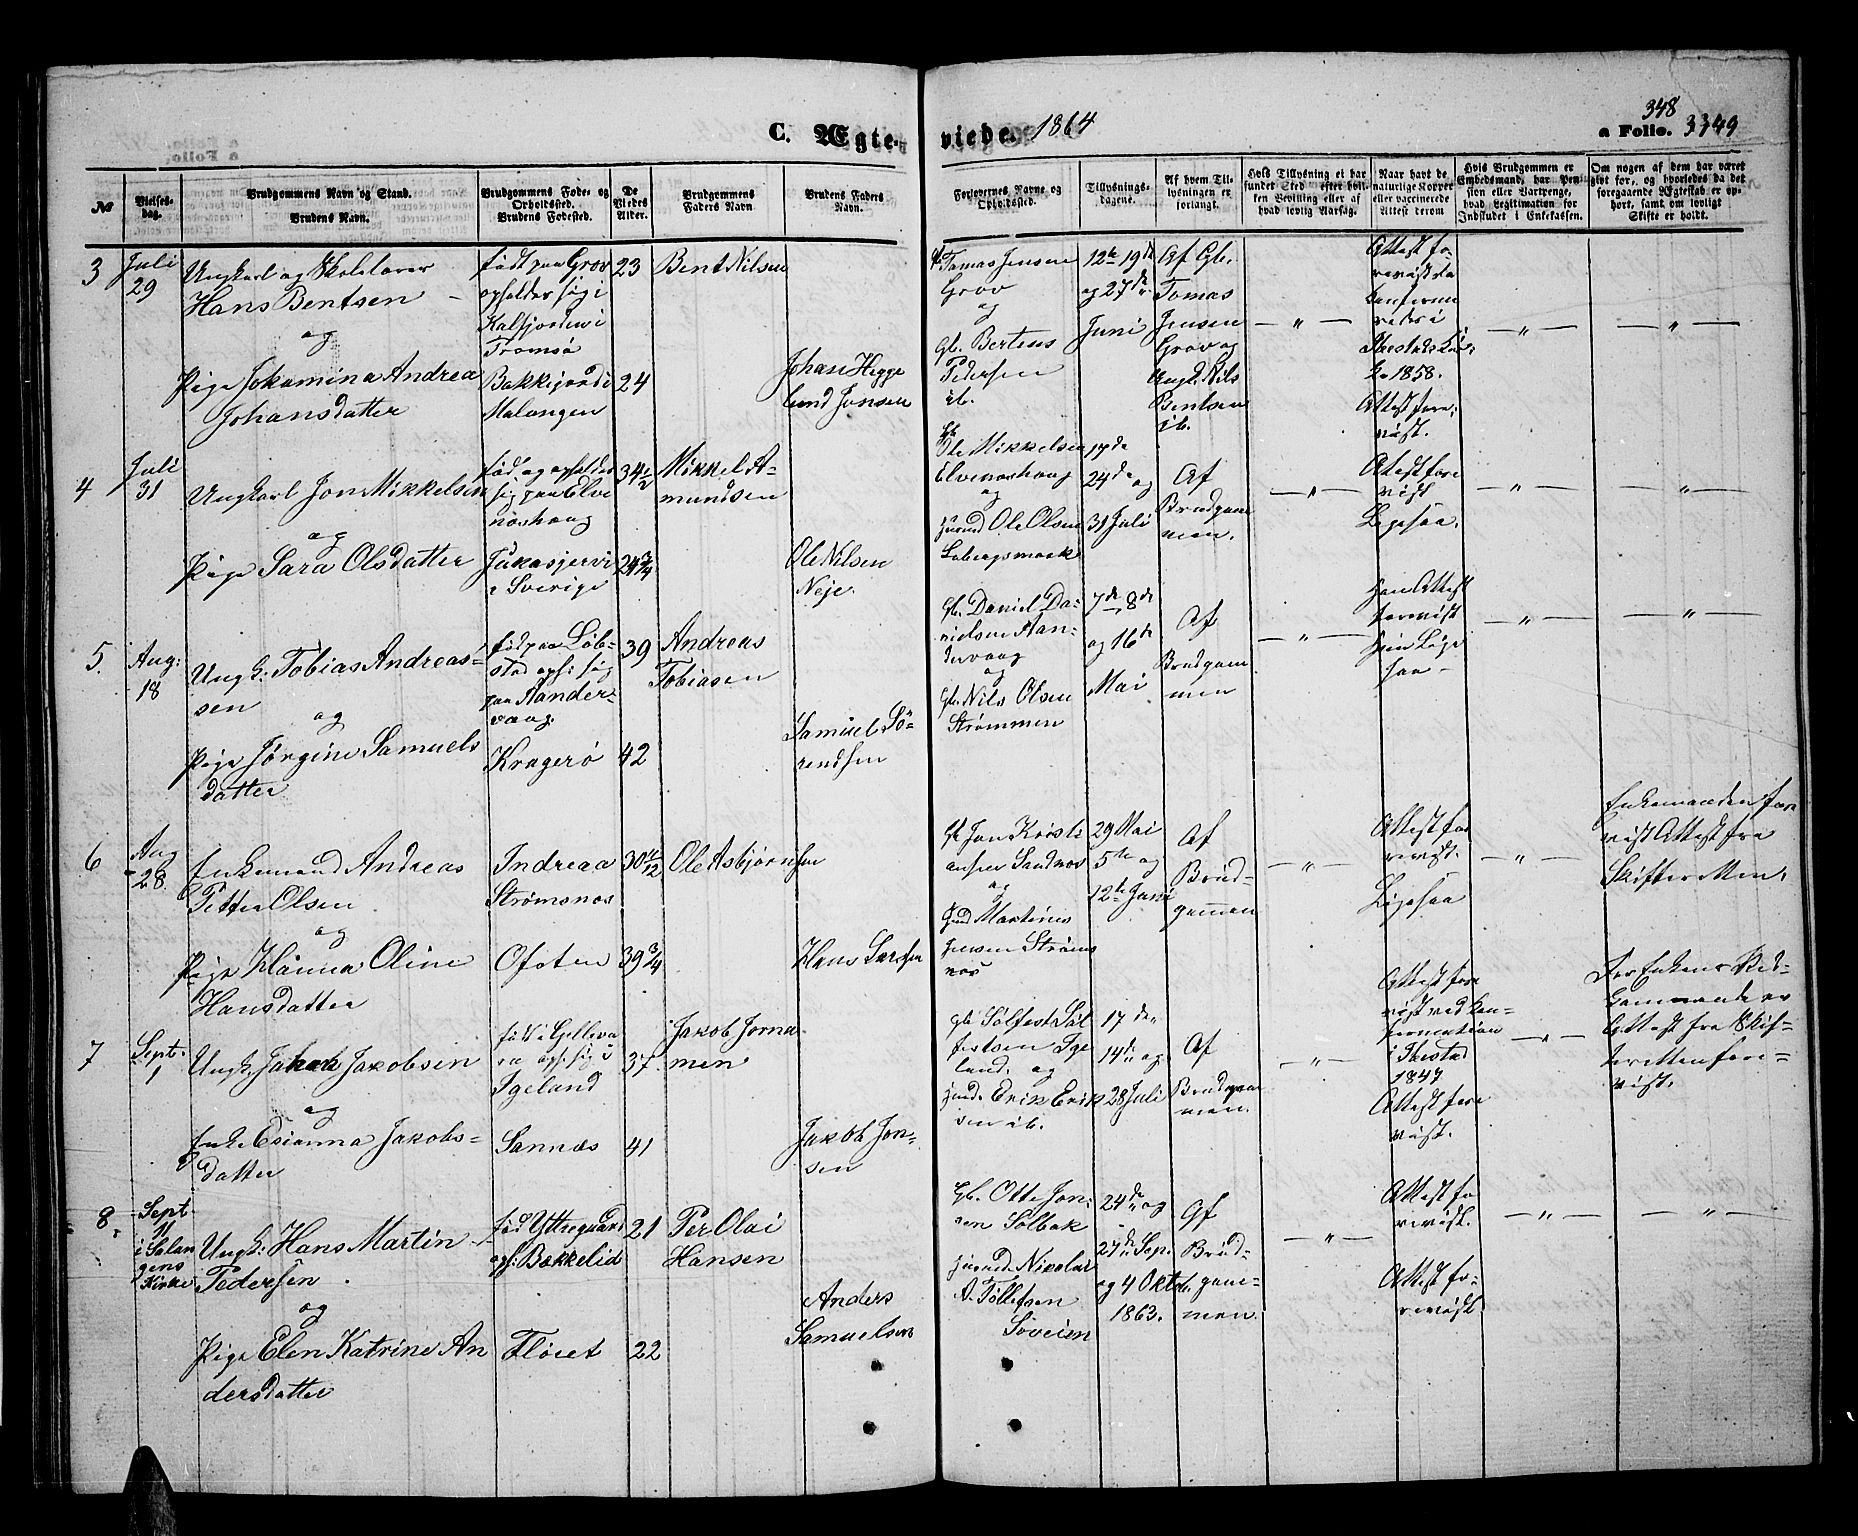 C. Ægte-
viede. 1864
348
a Folio. 3349
№
Vielses-
dag.
Brudgommens Navn og Stand.
Brudens Navn.
Brudgommens Føde- og
Opholdssted.
Brudens Fødested.
De
Viedes
Alder.
Brudgommens
Faders Navn.
Brudens Faders
Navn.
Forlovernes Navne og
Opholdssted.
Tillysnings-
dagene.
Af hvem Til-
lysningen er
forlangt.
Hvis Tillysning ei har
fundet Sted efter hvil-
ken Bevilling eller af
hvad lovlig Aarsag.
Naar havt de
naturlige Kopper
eller vaccinerede
Attest derom
Hvis Brudgommen er
Embedsmand, har Pen-
sion eller Vartpenge,
hvad Legitimation for
Indskudet i Enkekassen.
Om nogen af dem har været
gift før, og hvorledes da det
foregaaende Ægteskab er op-
hørt, samt om lovligt
Skifte er holdt.
3
Juli
29
Ungkarl og Skolelærer
Hans Bentsen
og
Pige Jokamina Andrea
Johansdatter
født paa Grov
opholder sig i
Kalfjorden i
Tromsö
Bakkejord i
Malangen
23
24
Bent Nilsen
Johan Hegge
lund Jonsen
Tomas Jensen
Grov
og
Gb. Berteus
Pedersen
ib.
12te 19de
og 27de
Juni
Af Gb.
Tomas
Jensen
Grov og
Ungk. Nils
Bentsen
ib.
Attest fo-
revist
1858.
Attest fore-
vist.
4
Juli
31
Ungkarl Jon Mikkelsen
og
Pige Sara Olsdatter
född og opholder
sig paa Elve
nøshaug
Jukasjervi
i Sverige
34 1/2
24 3/4
Mikkel A-
mundsen
Ole Nilsen
Neje.
Ole Mikkelsen
Elvenøshaug
og
Ole Olsen
Lobergsmark
17de
24de og
31 Juli
Af
Brudgom-
men.
Attest fore
vist
Ligesaa.
5
Aug:
18
Ungk. Tobias Andreas-
sen
og
Pige Jørgine Samuels
datter
født paa Löb-
stad oph: sig
paa Aander-
vaag.
Kragerö
39
42
Andreas
Tobiasen
Samuel Sö-
rendsen
Gb. Daniel Da-
nielsen Aan-
dervaag
og
Gb. Nils Olsen
Strømmen
7de 8de
og 16de
Mai
Af
Brudgom-
men
Attest
forevist
Lige-
saa
6
Aug
28
Enkemand Andreas
Petter Olsen
og
Pige Hanna Oline
Hansdatter
Indreaa
Strømsnos
Ofoten
30 11/12
39 3/4
Ole Asbjørnsen
Hans Larssen
Gb Jon Krist-
ansen Sandnos
og
Martines
Jensen Strøms
nos
29 Mai
5te og
12te Juni
Af
Brud-
gommen
Attest fo
revist.
Ligesaa
Enkemanden fore
vist Attest fra
Skifteretten.
7
Sept.
1
Ungk. Jakob Jakobsen
og
Enke Esianna Jakobs-
datter
født i Gelleva
ra oph: sig i
Igeland
Sannæs
37
41
Jakob Jorna-
men
Jakob Jon-
sen
Gb Sölfest Söl
festsen Ige
land. og
Erik Erik
sen ib.
17de
14de og
28 Juli
Af
Brudgom-
men.
Attest fore
vist ved Kon-
firmation
i Ibestad
1847
Attest fore
vist.
For Enkens Ved-
kommende er
Attest fra Skif-
teretten fore-
vist.
8.
Sept
11
i Salan
gens
Kirke
Ungk: Hans Martin
Pedersen
og
Pige Elen Katrine An
dersdatter
född Yttregaard
oph: Bakkelid
Flöiet
21
22
Per Olai
Hansen
Anders
Samuelsen
Gb. Otte Jon-
sen Solbak
Nikolai
A. Tollefsen
Söveien
24de og
27de Sep.
og 4 Oktb.
1863.
Af
Brud-
gom-
men.
Attest fo
revist.
Attest fo-
revist